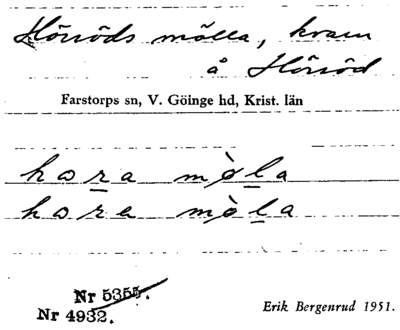 Hörröds mölla, kvarn
å Hörröd
Farstorps sn, V. Göinge hd, Krist. län
mò̀la
mò̀la
Nr 5355.
Nr 4932.
Erik Bergenrud 1951.